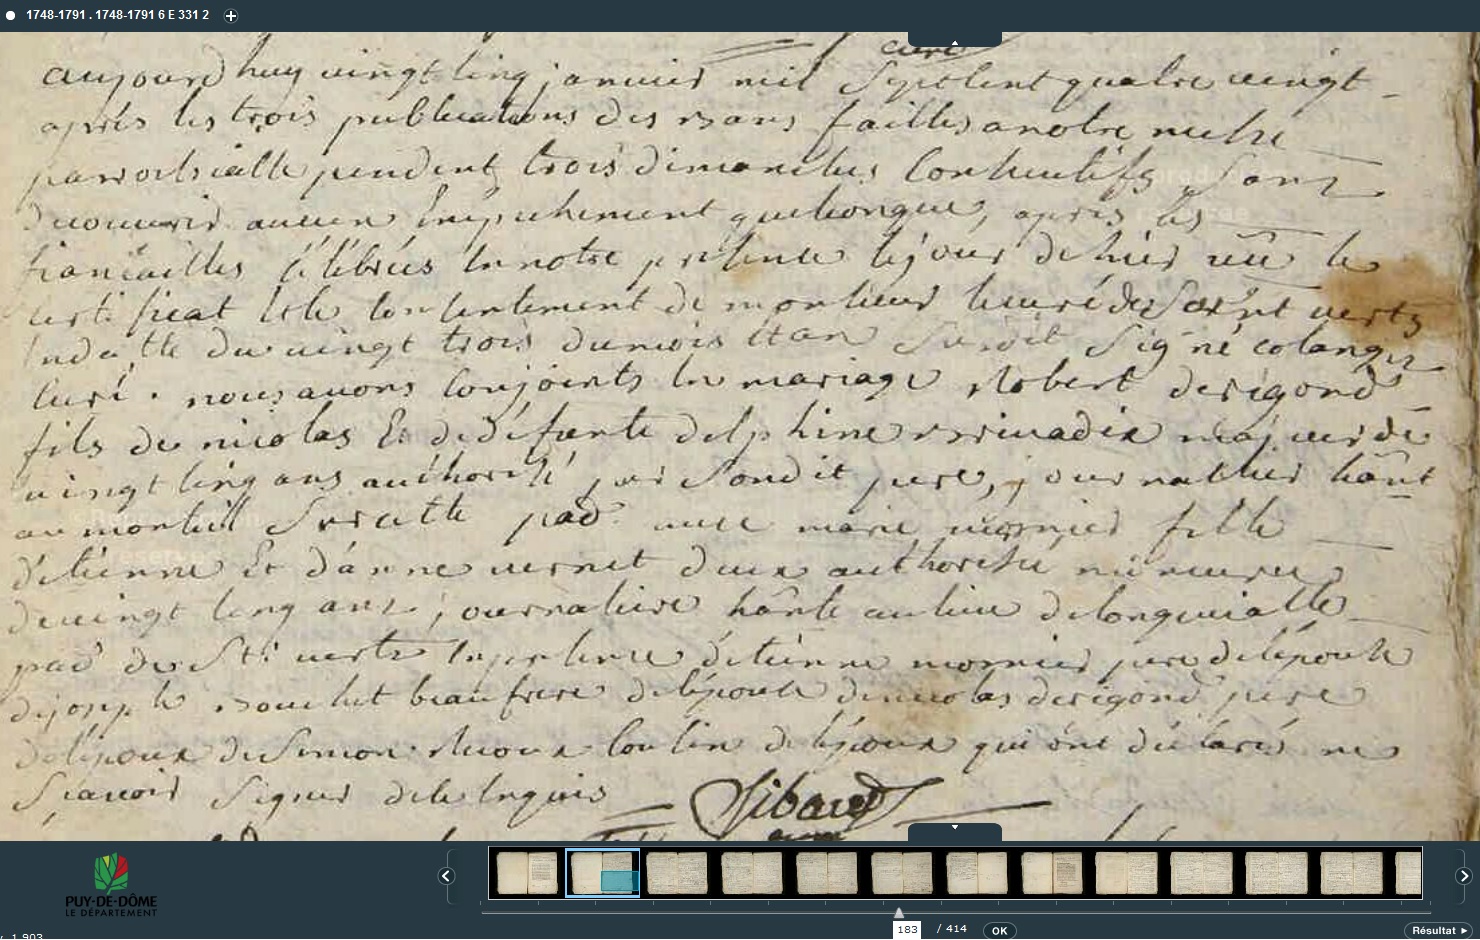 1748-1791 . 1748-1791 6 E 331 2
curé
aujourdhuy vingt cinq janvier mil sept cent quatre vingt
après les trois publications des bans faittes a notre messe
parroissialle pendent trois dimanches consecutifs sans
decouvrir aucun Empechement quelconque, apres les
fiancailles célébrées en notre presence le jour de hier vû le
certificat et le consentement de monsieur le curé de Saint verts
En datte du vingt trois du mois etan Signé colanges
curé. nous avons conjoints en mariage Robert derigond
fils de nicolas Et de défunte delphine majeur de
vingt cinq ans authorisé par Son dit pere, journallier hânt
au monteil Surcette paro. avec marie mornier fille
d'etienne Et d'anne vernet deux authorisée mineure
de vingt cinq ans, journaliere hânte au lieu de longevialle
paro de St. verts En presence d'etienne mornier pere de lépouse
de joseph bouchet beaufrere de lépouse de nicolas derigond pere
de lépoux de Simon cousin de lépoux qui ont déclaré ne
Scavoir Signer de ce Enquis
Sibaud
PUY-DE-DÔME
LE DÉPARTEMENT
183 / 414 OK
Résultat